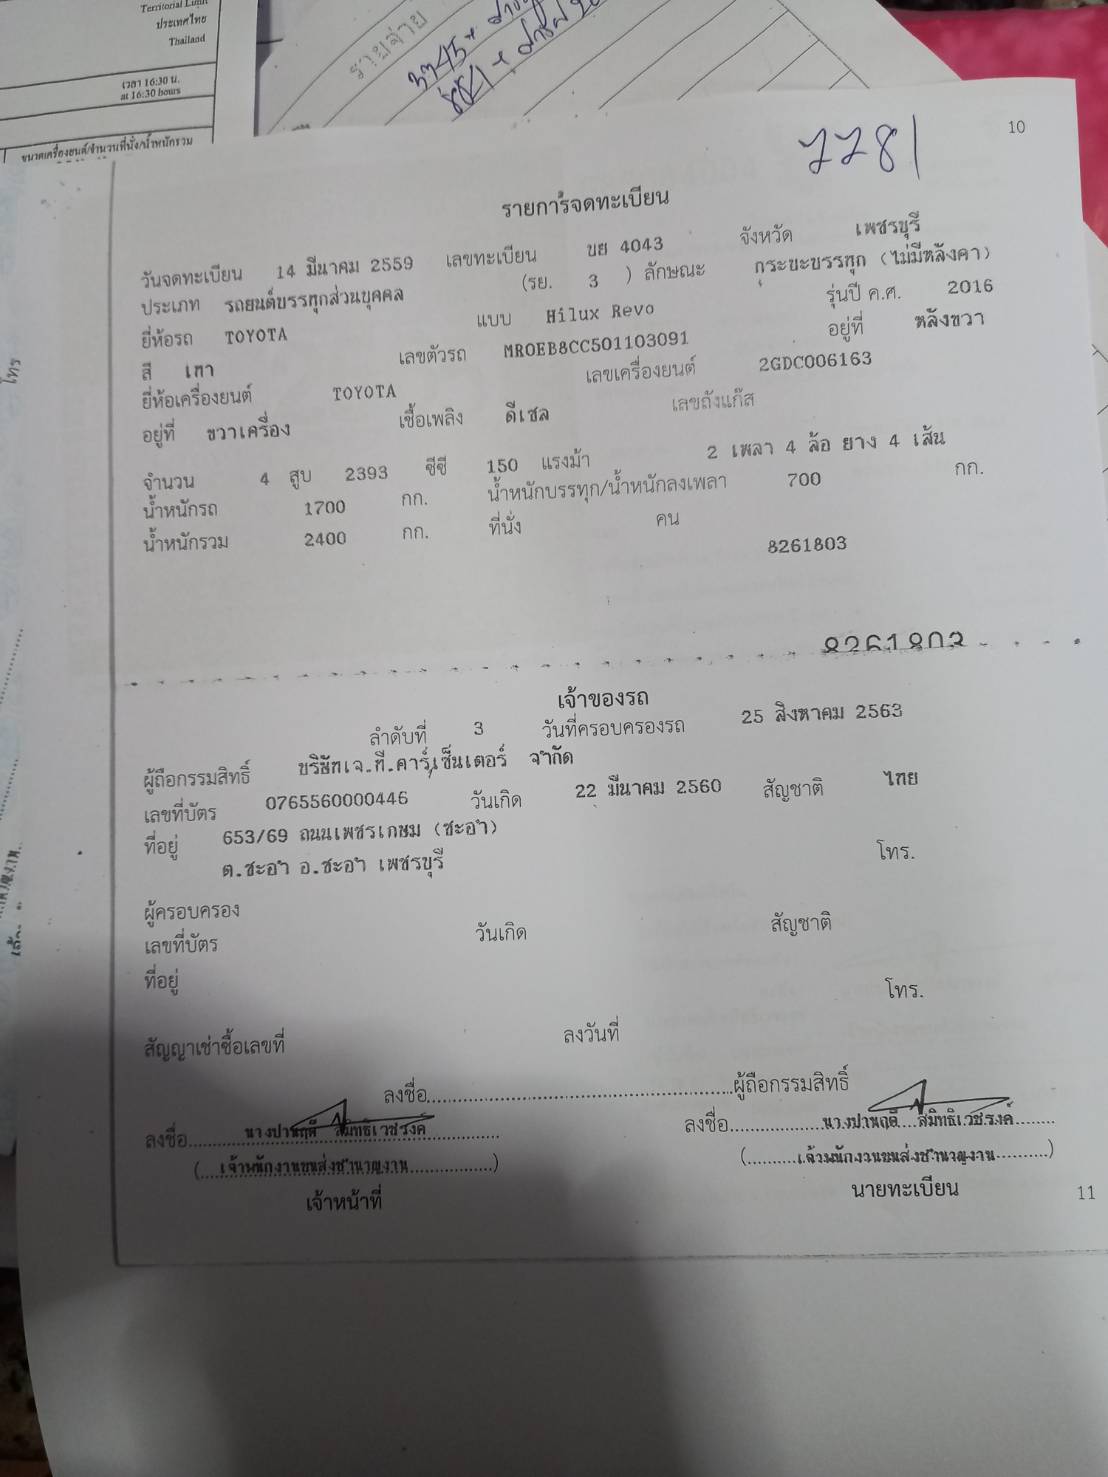 Territorial Limit
ประเทศไทย
Thailand
เวลา 16:30 น.
at 16:30 hours
ขนาดเครื่องยนต์/จำนวนที่นั่ง/น้ำหนักรวม
รายจ่าย
10
รายการจดทะเบียน
วันจดทะเบียน 14 มีนาคม 2559 เลขทะเบียน บย 4043 จังหวัด เพชรบุรี
ประเภท รถยนต์บรรทุกส่วนบุคคล (รย. 3 ) ลักษณะ กระบะบรรทุก (ไม่มีหลังคา)
ยี่ห้อรถ TOYOTA แบบ Hilux Revo รุ่นปี ค.ศ. 2016
สี เทา เลขตัวรถ MR0EB8CC501103091 อยู่ที่ หลังขวา
ยี่ห้อเครื่องยนต์ TOYOTA เลขเครื่องยนต์ 2GDC006163
อยู่ที่ ขวาเครื่อง เชื้อเพลิง ดีเซล เลขถังแก๊ส
จำนวน 4 สูบ 2393 ซีซี 150 แรงม้า 2 เพลา 4 ล้อ ยาง 4 เส้น
น้ำหนักรถ 1700 กก. น้ำหนักบรรทุก/น้ำหนักลงเพลา 700 กก.
น้ำหนักรวม 2400 กก. ที่นั่ง คน
8261803
8261803
เจ้าของรถ
ลำดับที่ 3 วันที่ครอบครองรถ 25 สิงหาคม 2563
ผู้ถือกรรมสิทธิ์ บริษัทเจ.ที.คาร์เซ็นเตอร์ จำกัด
เลขที่บัตร 0765560000446 วันเกิด 22 มีนาคม 2560 สัญชาติ ไทย
ที่อยู่ 653/69 ถนนเพชรเกษม (ชะอำ)
ต.ชะอำ อ.ชะอำ เพชรบุรี โทร.
ผู้ครอบครอง
เลขที่บัตร วันเกิด สัญชาติ
ที่อยู่
โทร.
สัญญาเช่าซื้อเลขที่ ลงวันที่
ลงชื่อ ผู้ถือกรรมสิทธิ์
ลงชื่อ ลงชื่อ
(เจ้าพนักงานขนส่งชำนาญงาน) (เจ้าพนักงานขนส่งชำนาญงาน)
เจ้าหน้าที่ นายทะเบียน
11